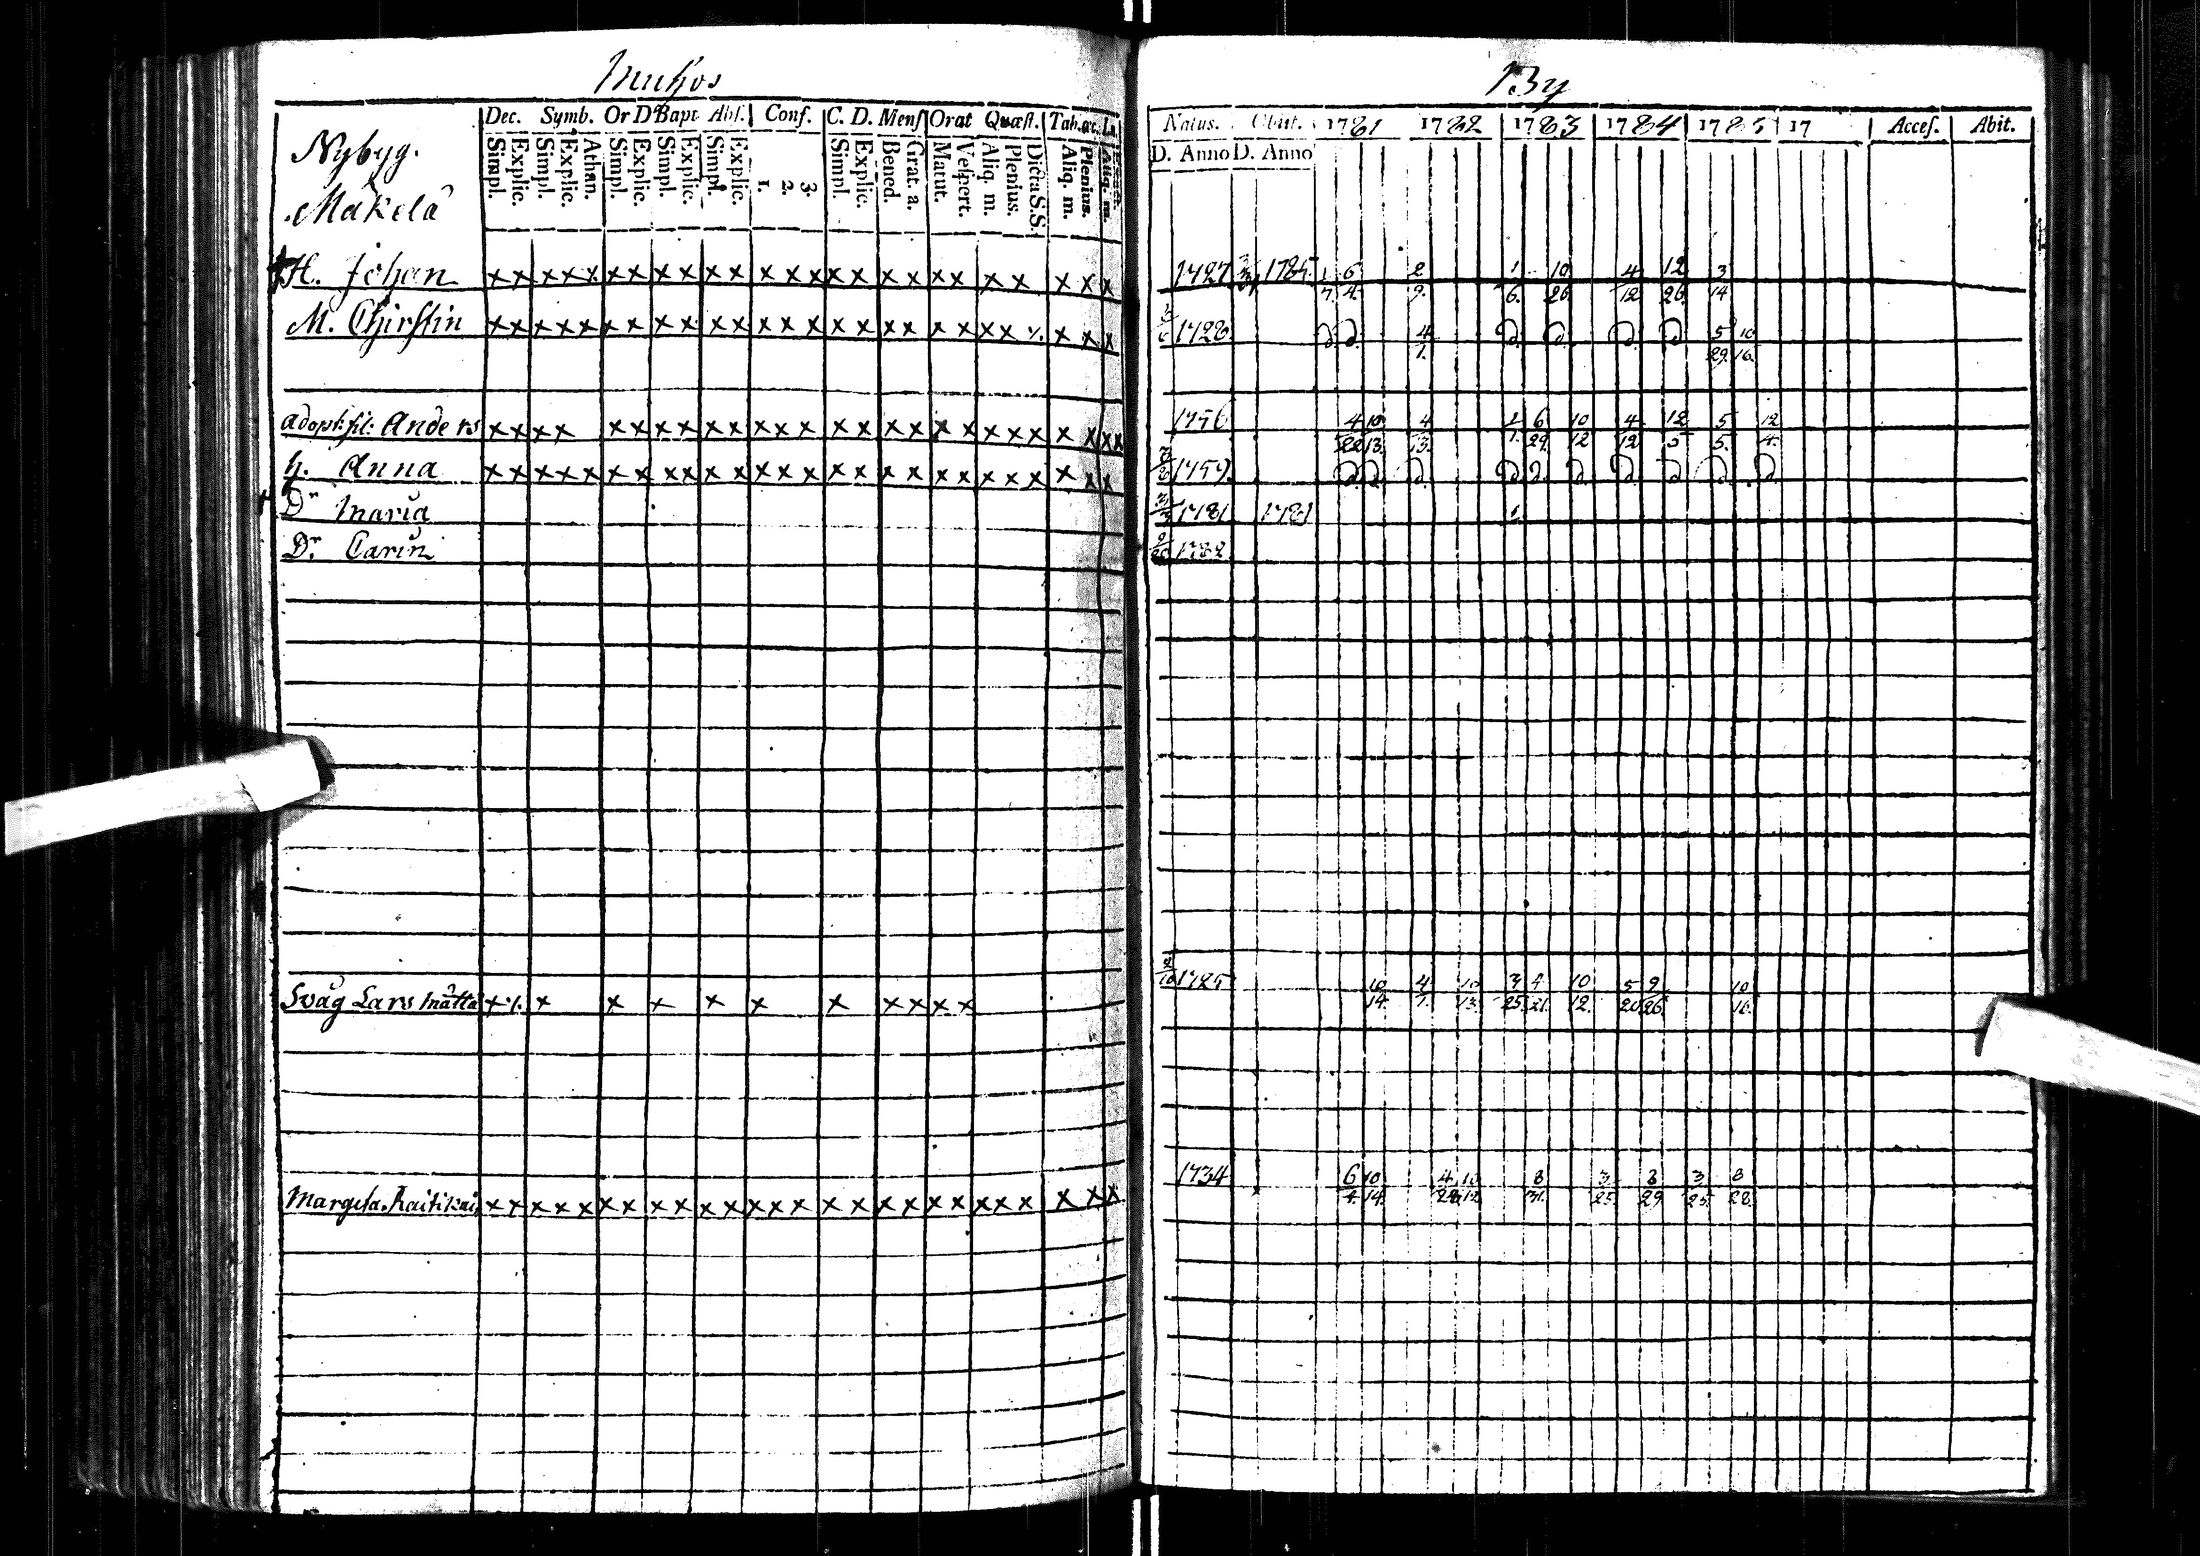 Muhos By
Dec. Symb. Or D Bapt Abs. Conf. C. D. Mens Orat Quæst. Tab.
Natus. Obiit. 1781 1782 1783 1784 1785 17 Acces. Abit.
Nybyg.
Mäkelä
Simpl. Explic. Simpl. Explic. Athan. Simpl. Explic. Simpl. Explic. Simpl. Explic. 1. 2. 3. Simpl. Explic. Bened. Grat. a. Matut. Vespert. Aliq. m. Plenius. Dicta S.S. Aliq. m. Plenius. Aliq. m.
D. Anno D. Anno
H. Johan x x x x x x x x x x x x x x x x x x x x x x x x x 1727 1785 1/7 6/4 2/9. 1/6. 10/26 4/12 12/26 3/14
M. Chirstin x x x x x x x x x x x x x x x x x x x x x x x x 1728 D D. 4/1. D. D D D 5/29. 10/16.
adopt. fil: Anders x x x x x x x x x x x x x x x x x x x x x x x x x 1756 4/22 10/13. 4/13. 1/1. 6/29. 10/12 4/12 12/5 5/5. 12/4.
h. Anna x x x x x x x x x x x x x x x x x x x x x x x x x 1757. D D. D. D D. D D D D D
Dr Maria 1781 1781
Dr. Carin 1782.
Svåg Lars Mättä x x x x x x x x x x x 10/14 4/1. 10/13. 10/12. 5/20 9/26. 10/16.
Margeta x x x x x x x x x x x x x x x x x x x x x x x x x 1734 6/4. 10/14. 8/31. 3/25. 8/29 3/25. 8/28.